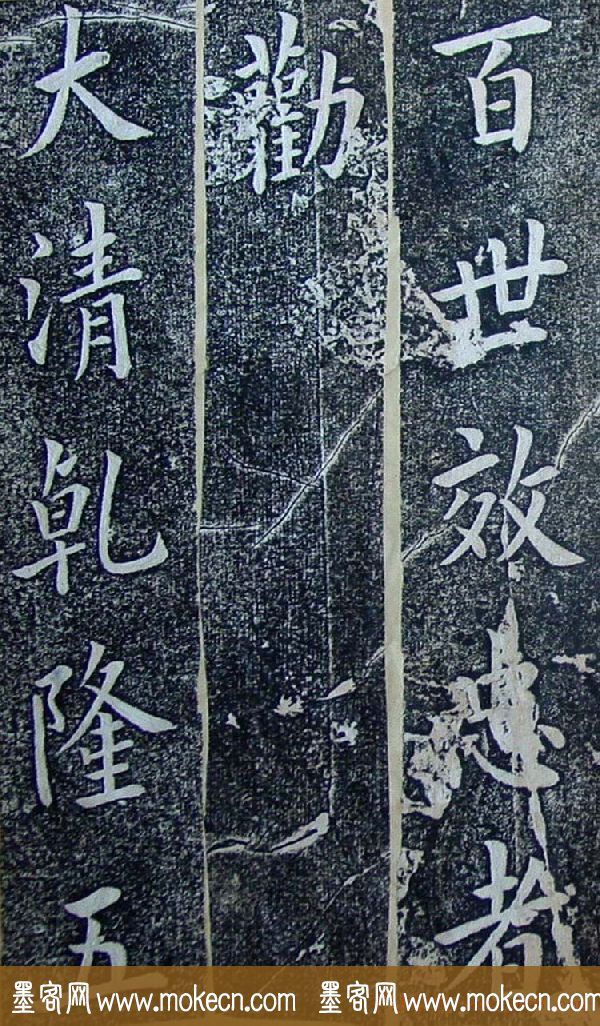 百世效忠者
勸
大清乾隆五
墨客网 www.mokecn.com 墨客网 www.mokecn.com